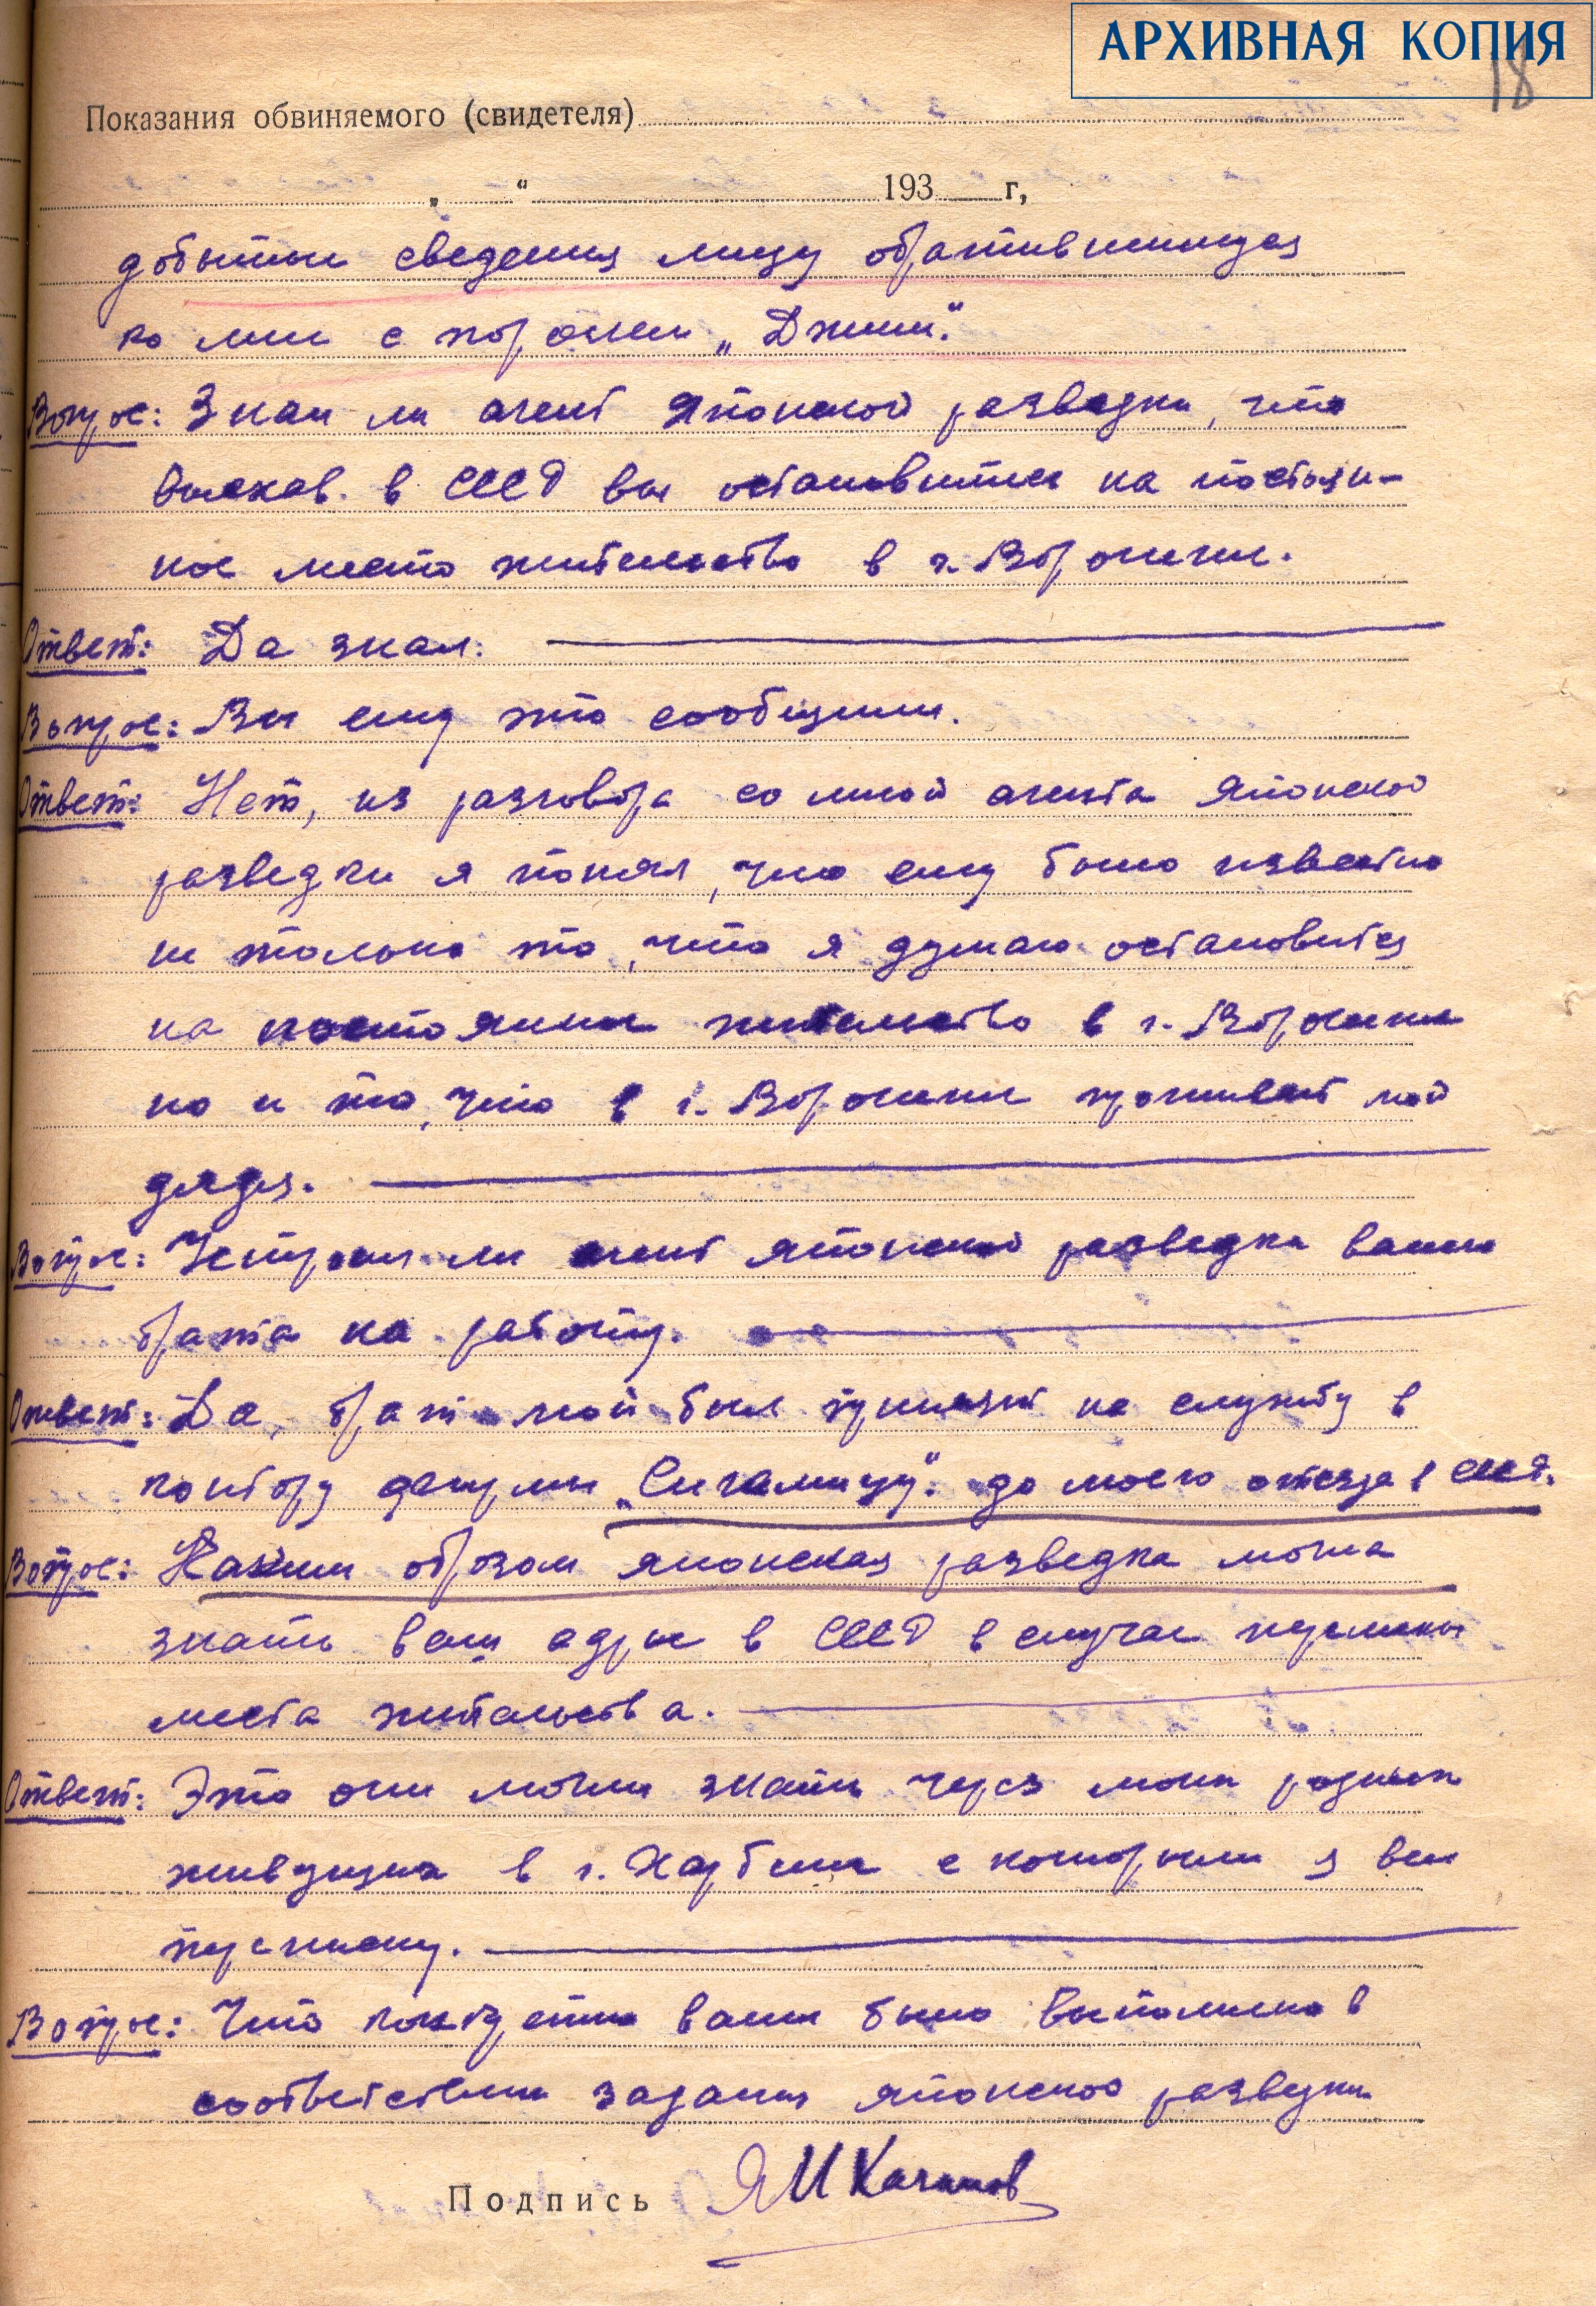 АРХИВНАЯ КОПИЯ
18
Показания обвиняемого (свидетеля)
„ “ 193 г,
добытые сведения лицу обратившимуся
ко мне с паролем „Джим“.
Вопрос: Знал ли агент Японской разведки, что
выехав. в СССР вы остановитесь на постоян-
ное место жительство в г. Воронеже.
Ответ: Да знал.
Вопрос: Вы ему это сообщили.
Ответ: Нет, из разговора со мной агента Японской
разведки я понял, что ему было известно
не только то, что я думаю остановится
на постоянное жительство в г. Воронеже
но и то, что в г. Воронеже проживает мой
дядя.
Вопрос: Устроил ли агент японской разведки вашего
брата на работу.
Ответ: Да, брат мой был принят на службу в
контору фирмы „Сигамицу“. до моего отезда в СССР.
Вопрос: Каким образом японская разведка могла
знать ваш адрес в СССР в случае перемены
места жительства.
Ответ: Это они могли знать через моих родных
живущих в г. Харбине с которыми я вел
переписку.
Вопрос: Что конкретно вами было выполнено в
соответствии задания японской разведки
Подпись ЯИКачанов